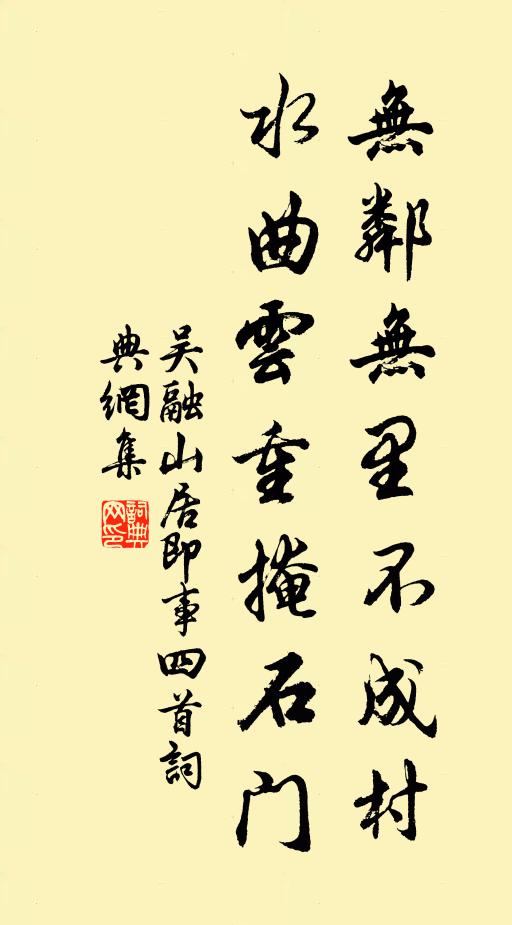 無鄰無里不成村
水曲雲重掩石门
吴融山居即事四首詞
典網集
詞典
网印